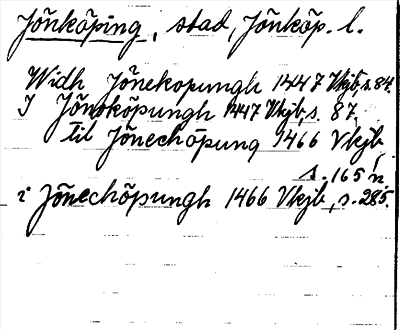 Jönköping, stad, Jönköp. l.
Widh Jönekopungh 1447 Vkjb, s. 84.
I Jönoköpungh 1447 Vkjb, s. 87.
til Jönechöpung 1466 Vkjb
s. 165 n.
i Jönechöpungh 1466 Vkjb, s. 285.